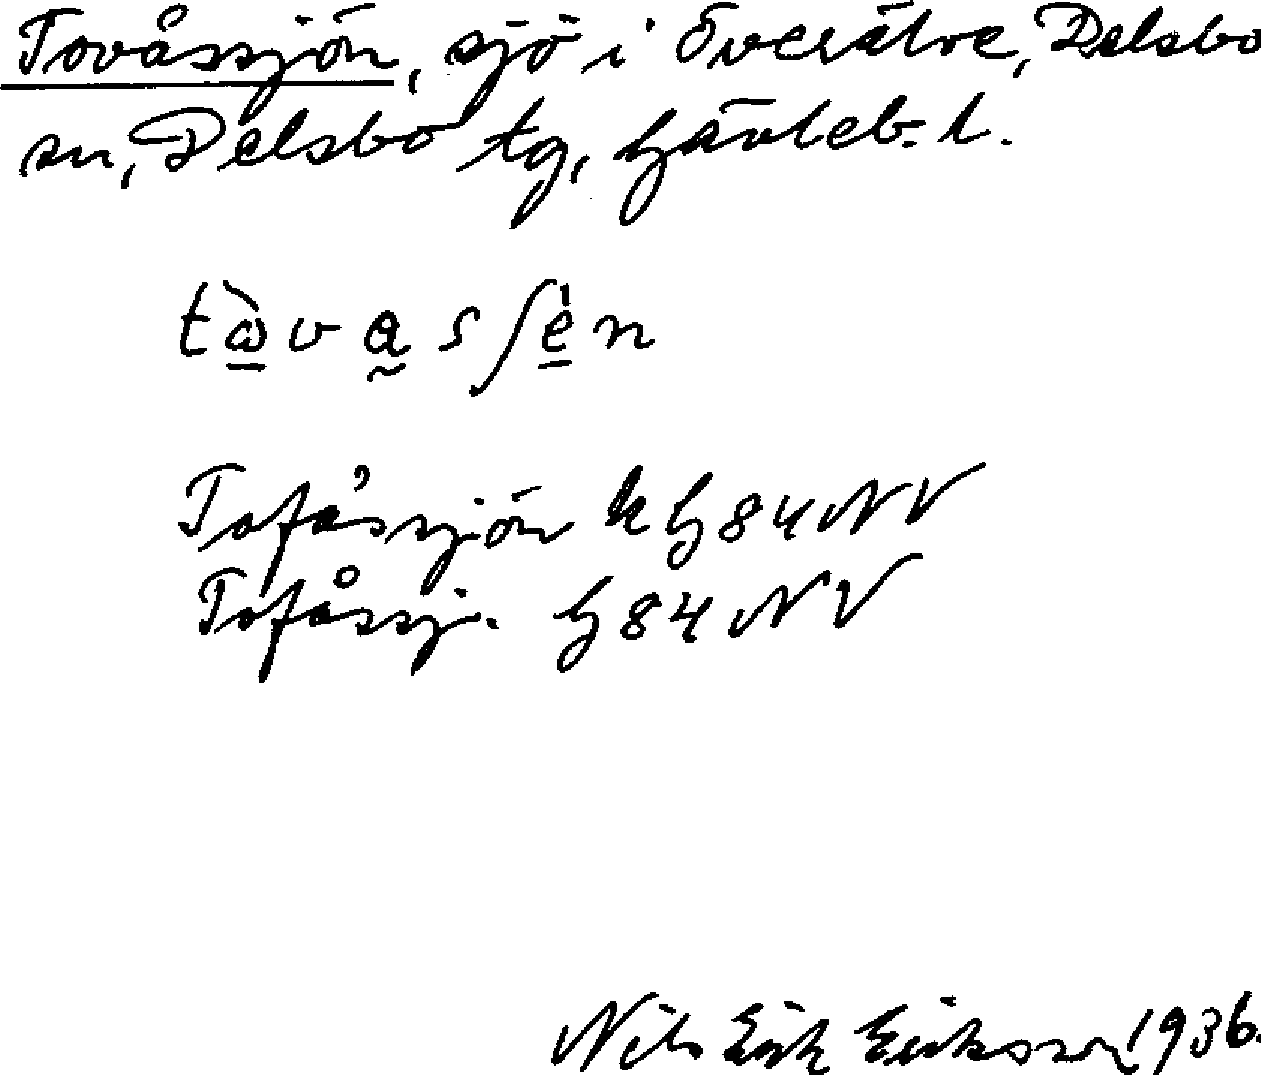 Tovåssjön, sjö i Överälve, Delsbo
sn, Delsbo tg, Gävleb. l.
tɷ̀vas ʃèn
Tofåssjön k G 84 NV
Tofåssj. G 84 NV
Nils Erik Eriksson 1936.